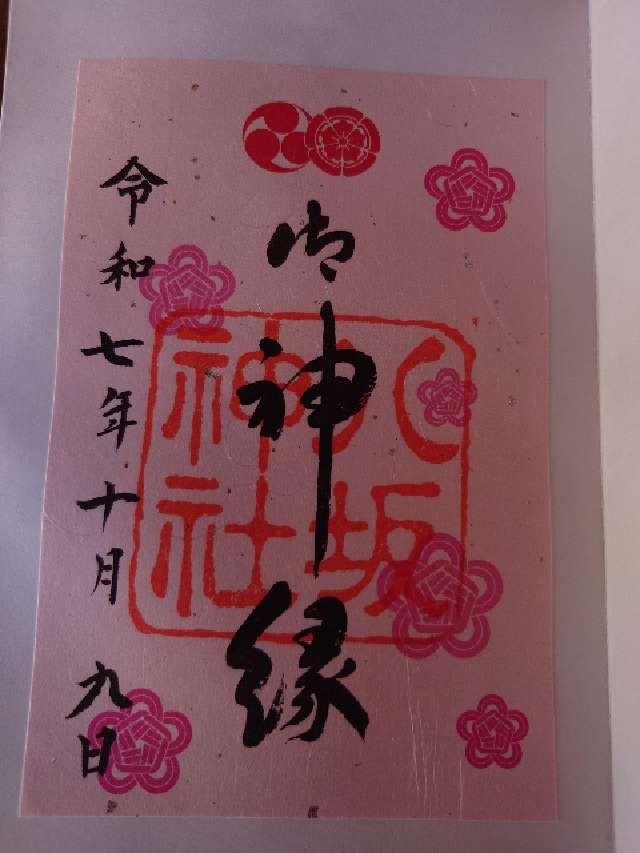 御神縁
八坂
神社
令和七年十月九日